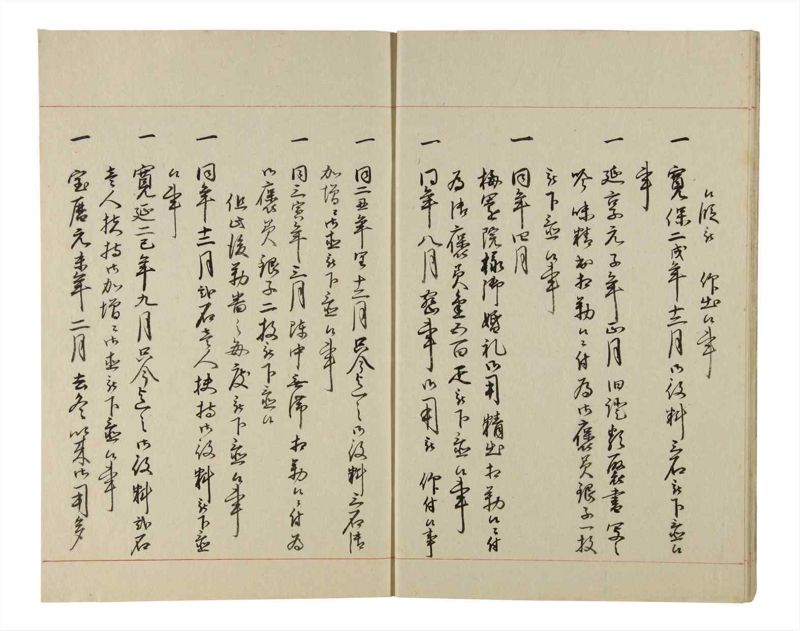 被 仰出候事
一 寛保二戌年十二月御役料三石被下置候
事
一 延享元子年正月旧記類聚書写之
吟味精出相勤候ニ付為御褒美銀子一枚
被下置候事
一 同年四月
様御婚礼御用精出相勤候ニ付
為御褒美金百疋被下置候事
一 同年八月密事御用被 仰付候事
一 同二丑年十二月只今迄之御役料三石御
加増ニ御直被下置候事
一 同三寅年三月陳中無滞相勤候ニ付為
御褒美銀子二枚被下置候
但此後勤番之毎度被下置候事
一 同年十二月弐石壱人扶持御役料被下置
候事
一 寛延二巳年九月只今迄之御役料弐石
壱人扶持御加増ニ御直被下置候事
一 宝暦元未年二月去冬以来御用多